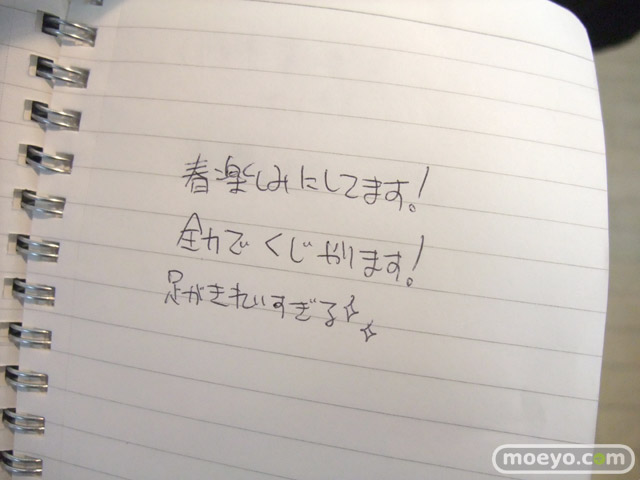 春楽しみにしてます!
全力でくじやります!
足がきれいすぎる✧✧
moeyo.com